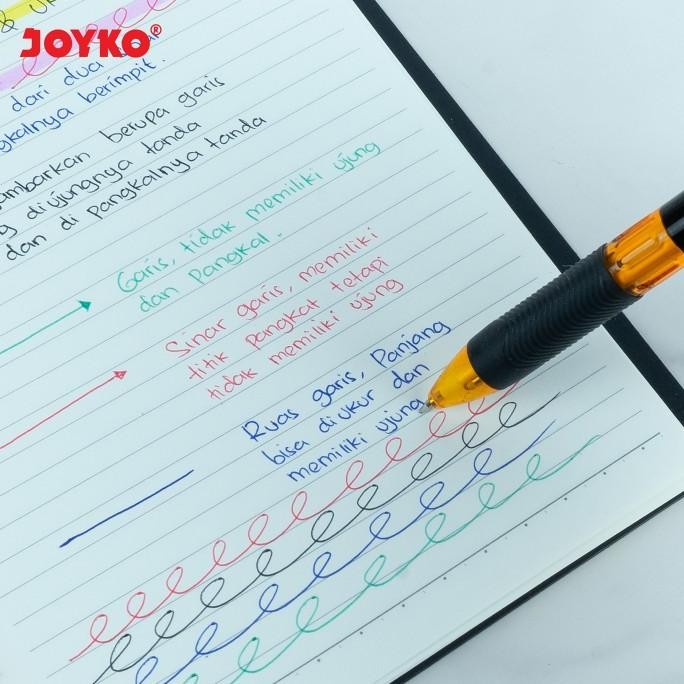 &
JOYKO®
dari dua
berimpit.
berupa garis
g diujungnya tanda
dan di pangkalnya tanda
Garis, tidak memiliki ujung
dan pangkal.
Sinar garis, memiliki
titik pangkal tetapi
tidak memiliki ujung
Ruas garis, Panjang
bisa diukur dan
memiliki ujung